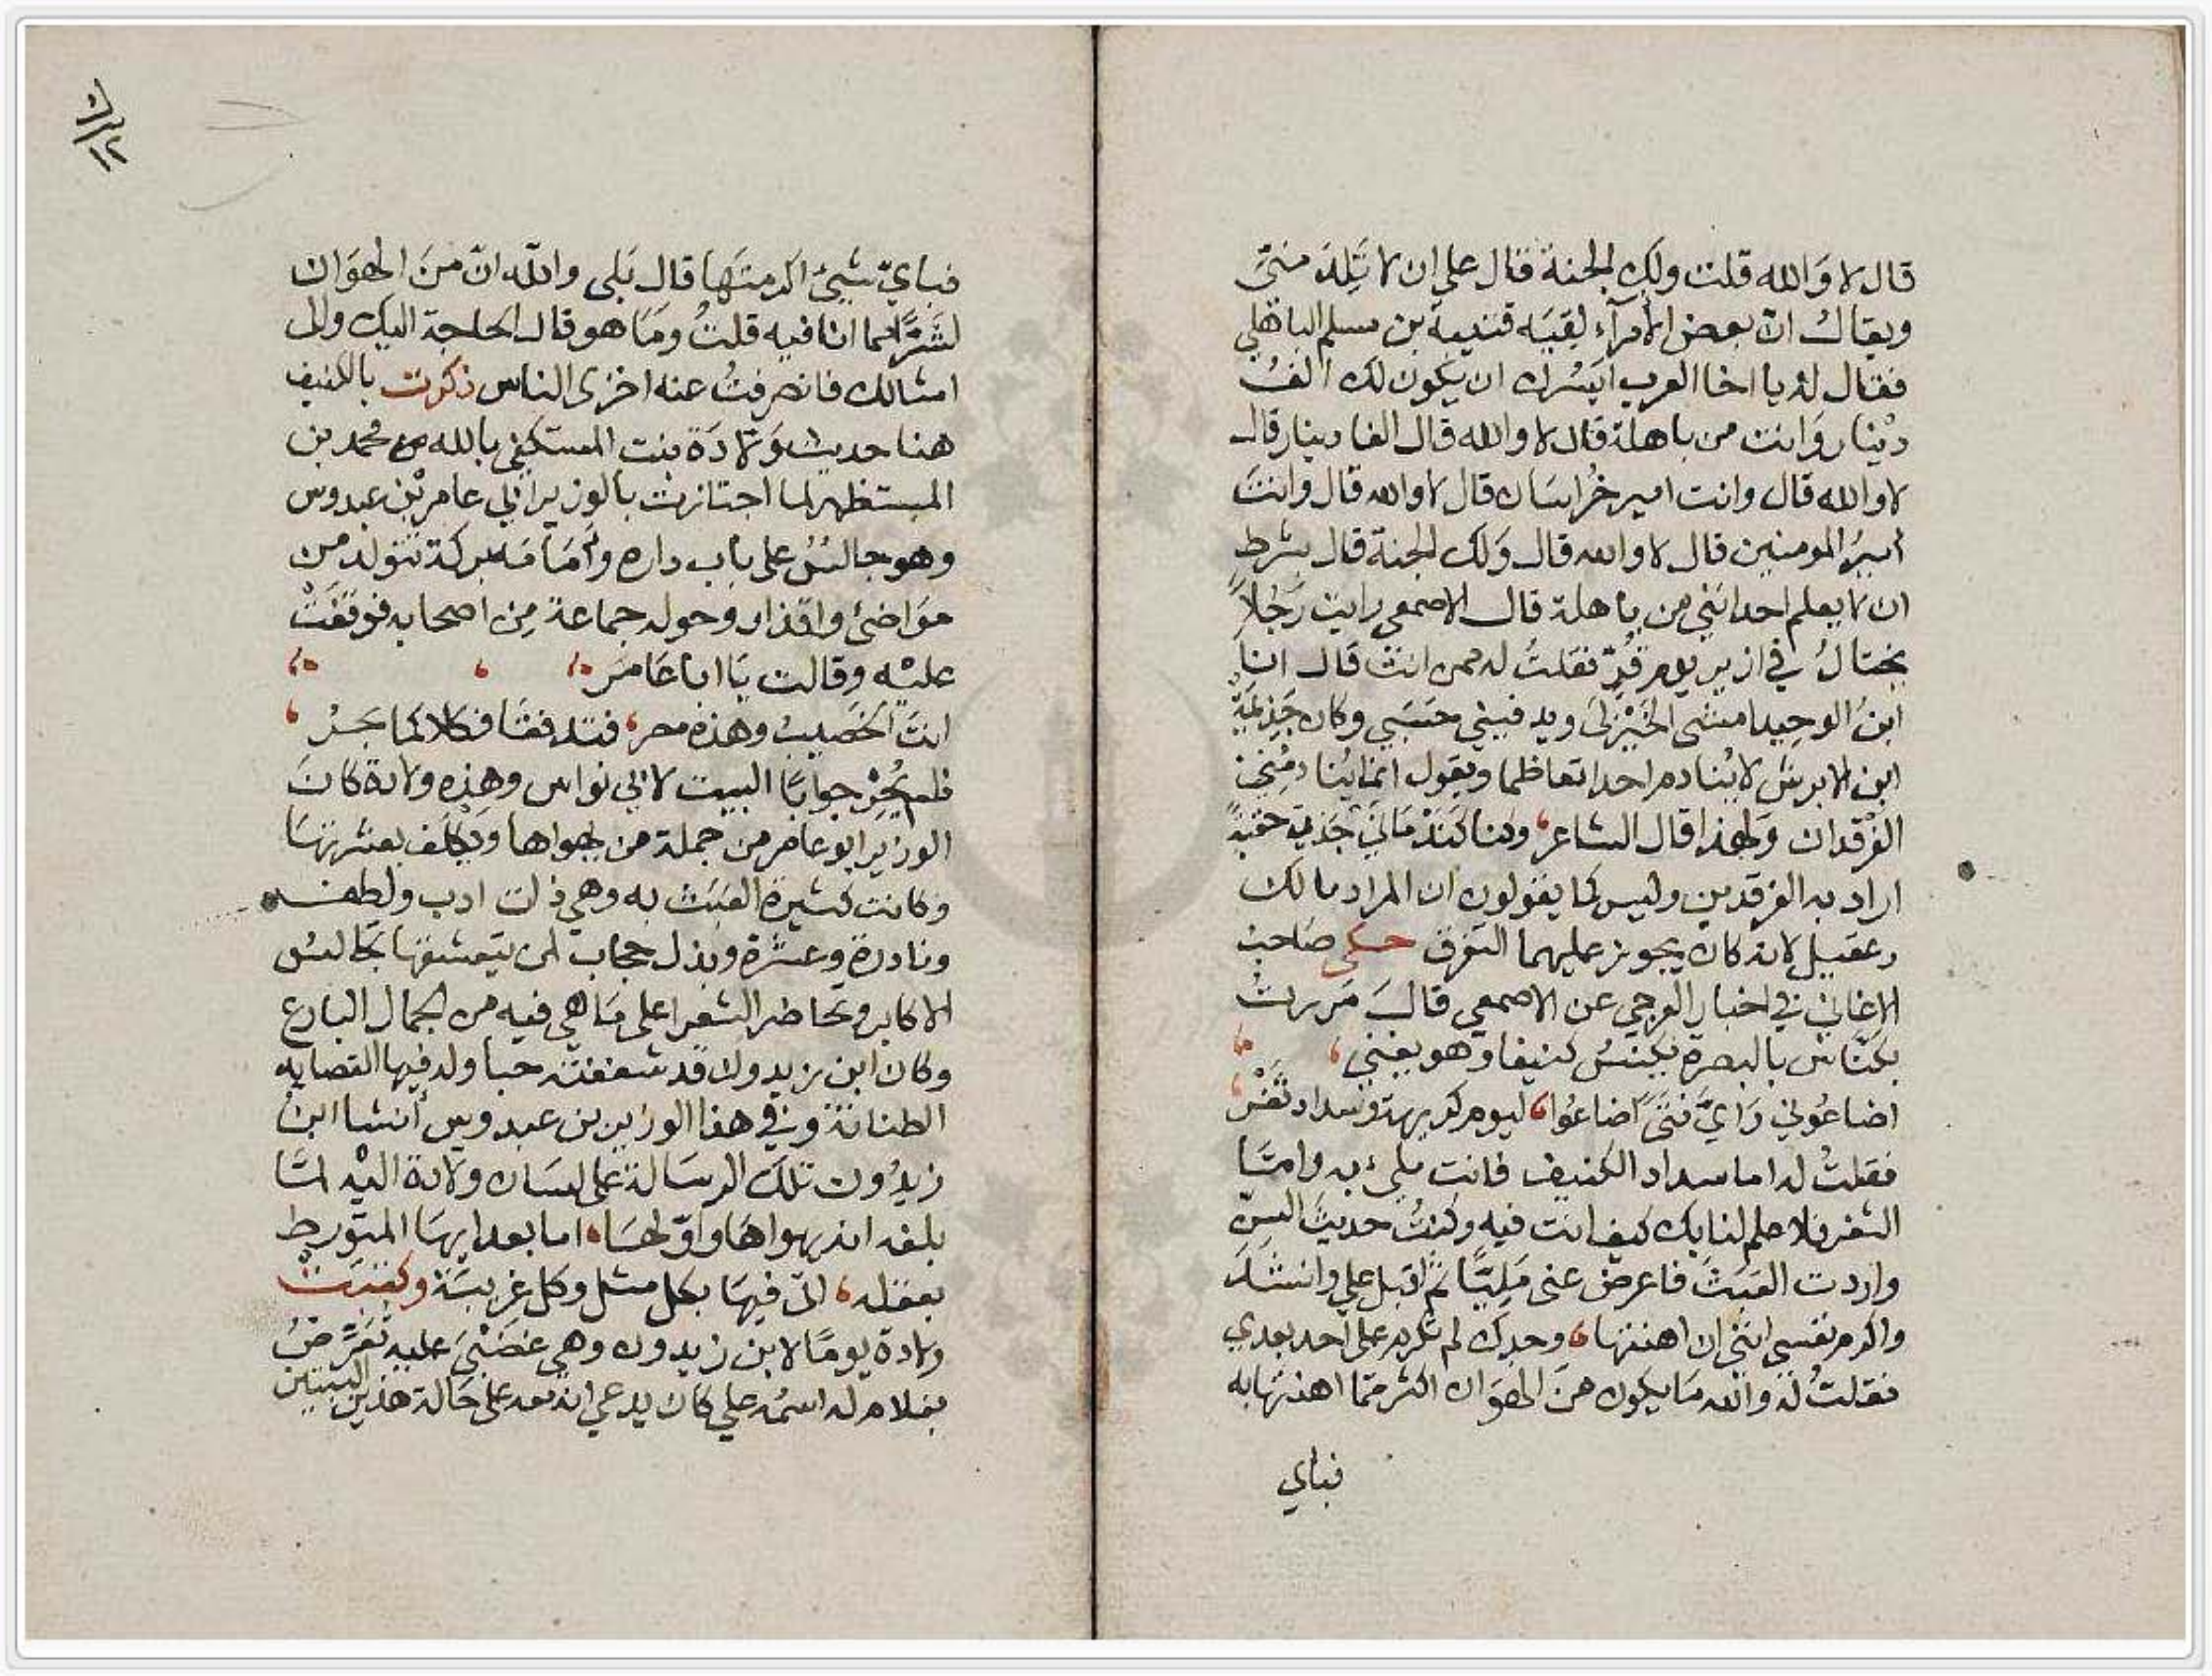 قال لا وَالله قلت ولك الجنة قال على ان لا تَلِدَ منّى
ويقالُ انّ بعض الأمرآء لقيَه قتيبة بن مسلم الباهلي
فقال له يا اخا العرب ايَسُرك ان يكون لك الفُ
دينار وَانت من باهلة قال لا والله قال الفا دينار قال
لا والله قال وانت امير خُراسَان قال لا والله قال وانتَ
أميرُ المومنين قال لا والله قال وَلك الجنة قال بشرط
ان لا يعلم احد انني من باهلة قال الاصمعي رايت رَجُلاً
يختالُ في ازير يوم قُرّ فقلتُ له ممن انتَ قال انا
ابنُ الوحيد امشى الخَيْزلَى ويدفيني حَسَبي وكان جَذِيمَة
ابن الابرش لا يُنادم احدا تعاظما ويقول انما يُنادمُني
الفَرْقدان وَلهذا قال الشاعر، وكنا كَنَدْمَانَيْ جَذِيمَة حقبةً
اراد به الفرقدين وليس كما يقولون ان المراد مالك
وعقيل لانه كان يجوز عليهما التفرق حكى صَاحبُ
الاغاني في اخبار العرجي عن الاصمعي قالَ مَررتُ
بكنّاس بالبصرة يكنسُ كنيفا وهو يغني،
اضاعُوني وَايَّ فتًى اضاعُوا، ليوم كريهة وسداد ثَغْرِ،
فقلتُ له اما سداد الكنيف فانت مليء به وامّا
الثغر فلا علم لنا بك كيف انت فيه وكنتُ حديثَ السنّ
واردت العَبَثَ فاعرضَ عنى مَلِيًّا ثم اقبل علي وانشدَ
واكرم نفسى انني ان اهنتها، وحقك لم تكرم على احد بعدي
فقلتُ له والله مَا يكون منَ الهَوَان اكثر مّما اهنتها به
فباي
فبايّ شيئ اكرمتَها قال بَلى والله انّ منَ الهوَان
لشَرًّا مما انا فيه قلتُ ومَا هو قال الحاجة اليك والى
امثالك فانصرفتُ عنه اخزى الناس ذكرت بالكنيف
هنا حديث وَلّادَة بنت المستكفي بالله محمد بن
المستظهر لما اجتازت بالوزير ابي عامر بْن عبدوس
وهو جالسٌ على باب داره وأمَامَه بركة تتولد من
موَاضئ واقذار وحوله جماعة مِن اصحابه فوقفَتْ
عليْه وقالت يَا ابا عَامر،
انتَ الخَصيبُ وهذه مصر، فتدفقَا فكلاكما بَحرُ،
فلم يُحِرْ جوابًا البيت لابي نواس وهذِه ولادة كانَ
الوزير ابو عامر من جملة من يهواها ويَكلَف بعشرتهَا
وكانت كثيرة العَبَث به وهي ذات ادب ولطف
ونادرة وعشرة وبذل حجاب لمن يتعشقها تجالسُ
الاكابر وتحاضر الشعرا على مَا هي فيه من الجمال البارع
وكان ابن زيدون قد شغفته حبا وله فيها القصايد
الطنانة وفي هذا الوزير بن عبدوس أنشا ابنُ
زيدُون تلكَ الرسَالة على لسَان ولادة اليْه لمّا
بلغه انه يهواها وَاوّلهَا، اما بعد ايهَا المتورط
بعقله، التى فيهَا بكل مثل وكل غريبَة وكتبَتْ
ولادة يومًا لابن زيدون وهي غضبَى عليه تُعَرّضُ
بغلام له اسمُه علي كان يدعي انه معه على حَالة هذين البيتين